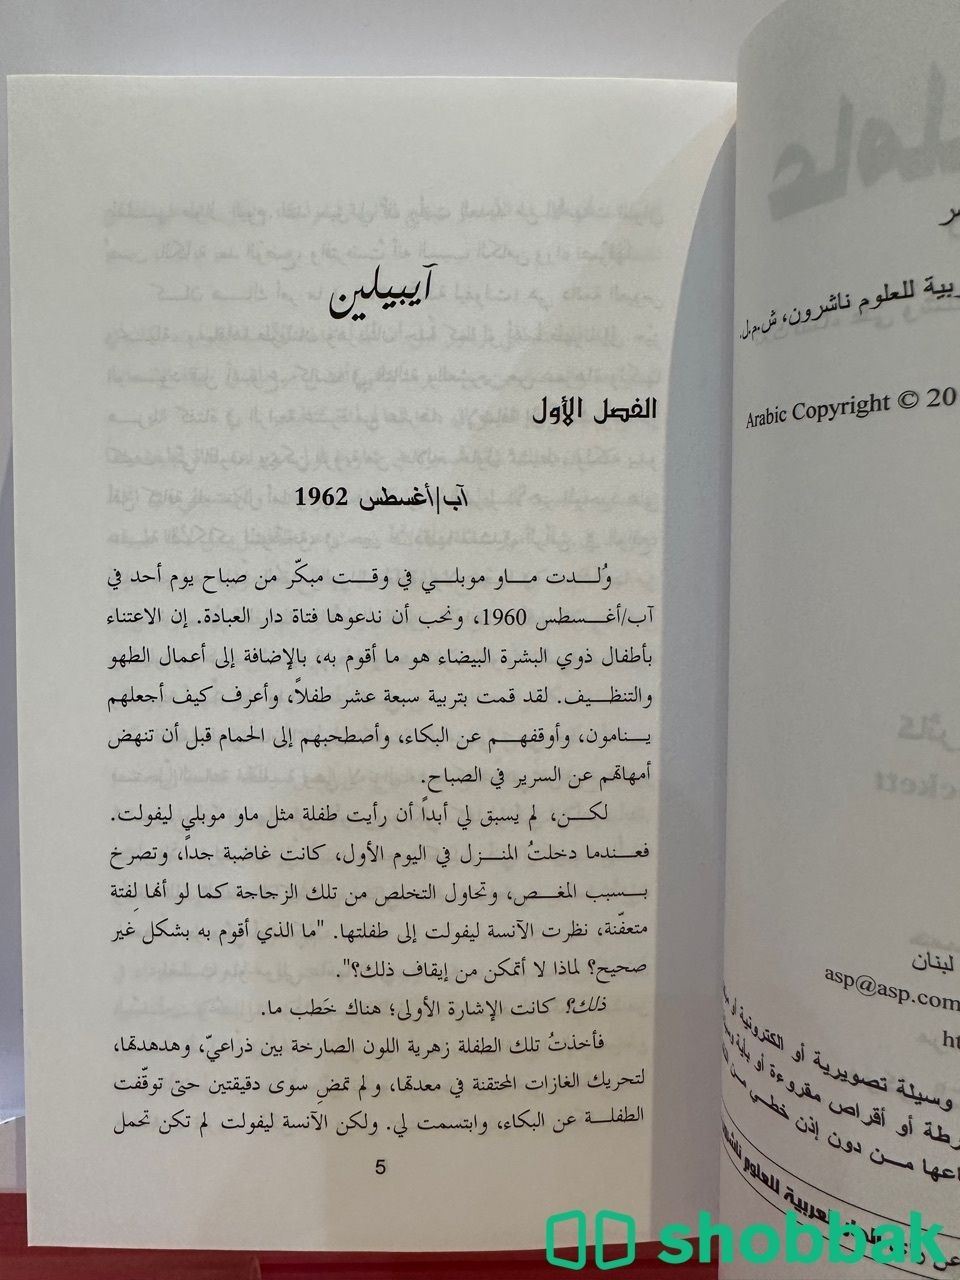 آيبيلين
الفصل الأول
آب/أغسطس 1962
وُلدت ماو موبلي في وقت مبكّر من صباح يوم أحد في
آب/أغسطس 1960، ونحب أن ندعوها فتاة دار العبادة. إن الاعتناء
بأطفال ذوي البشرة البيضاء هو ما أقوم به، بالإضافة إلى أعمال الطهو
والتنظيف. لقد قمت بتربية سبعة عشر طفلاً، وأعرف كيف أجعلهم
ينامون، وأوقفهم عن البكاء، وأصطحبهم إلى الحمام قبل أن تنهض
أمهاتهم عن السرير في الصباح.
لكن، لم يسبق لي أبداً أن رأيت طفلة مثل ماو موبلي ليفولت.
فعندما دخلتُ المنزل في اليوم الأول، كانت غاضبة جداً، وتصرخ
بسبب المغص، وتحاول التخلص من تلك الزجاجة كما لو أنها لِفتة
متعفّنة، نظرت الآنسة ليفولت إلى طفلتها. "ما الذي أقوم به بشكل غير
صحيح؟ لماذا لا أتمكن من إيقاف ذلك؟".
ذلك؟ كانت الإشارة الأولى؛ هناك خَطب ما.
فأخذتُ تلك الطفلة زهرية اللون الصارخة بين ذراعيّ، وهدهدتها،
لتحريك الغازات المحتقنة في معدتها، ولم تمضِ سوى دقيقتين حتى توقّفت
الطفلة عن البكاء، وابتسمت لي. ولكن الآنسة ليفولت لم تكن تحمل
5
للعلوم ناشرون، ش.م.ل.
Arabic Copyright © 20
لبنان
asp@asp.com
وسيلة تصويرية أو الكترونية أو
أو أقراص مقروءة أو بأية
من دون إذن خطي من
العربية للعلوم
shobbak